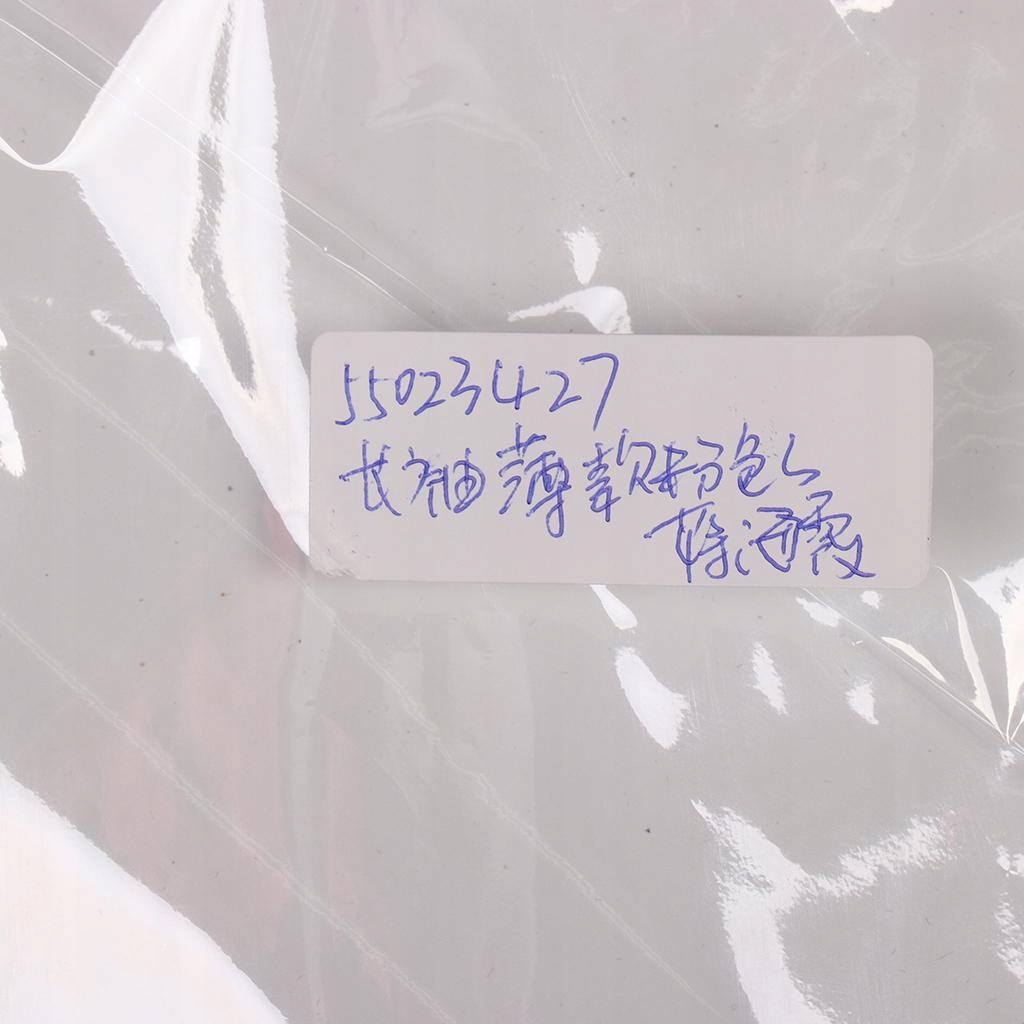 55023427
长袖薄款粉色
海霞